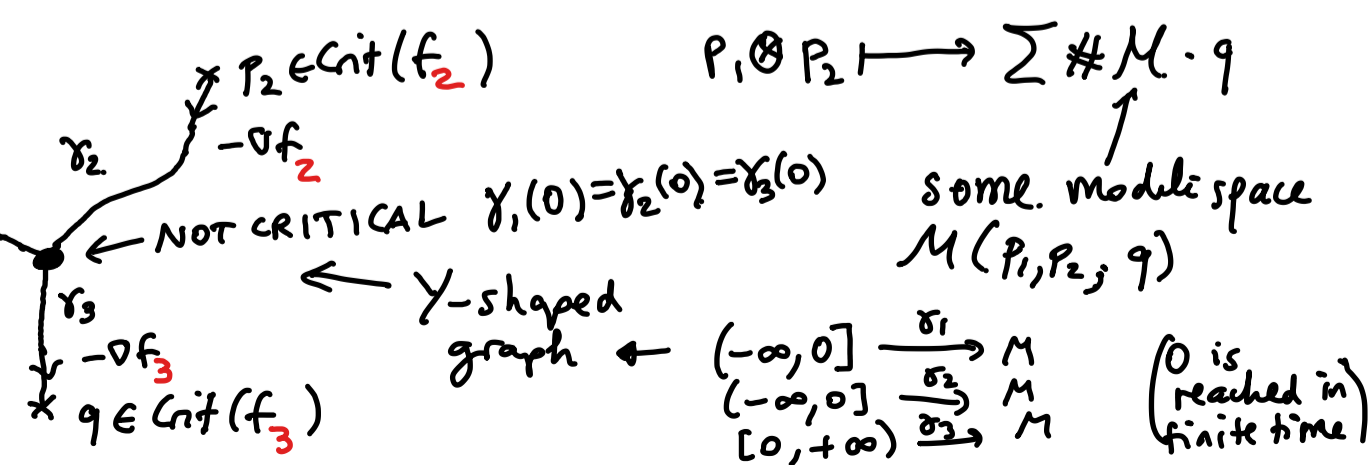 p₂ ∈ Crit(f₂)
-∇f₂
γ₂.
← NOT CRITICAL
γ₁(0)=γ₂(0)=γ₃(0)
γ₃
-∇f₃
q ∈ Crit(f₃)
← Y-shaped
graph ←
P₁⊗P₂ ⟼ Σ #M·q
some. moduli space
M(P₁,P₂; q)
(-∞,0] —γ₁→ M
(-∞,0] —γ₂→ M
[0,+∞) —γ₃→ M
(0 is
reached in
finite time)